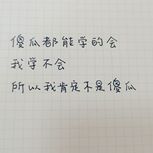 傻瓜都能学的会
我学不会
所以我肯定不是傻瓜